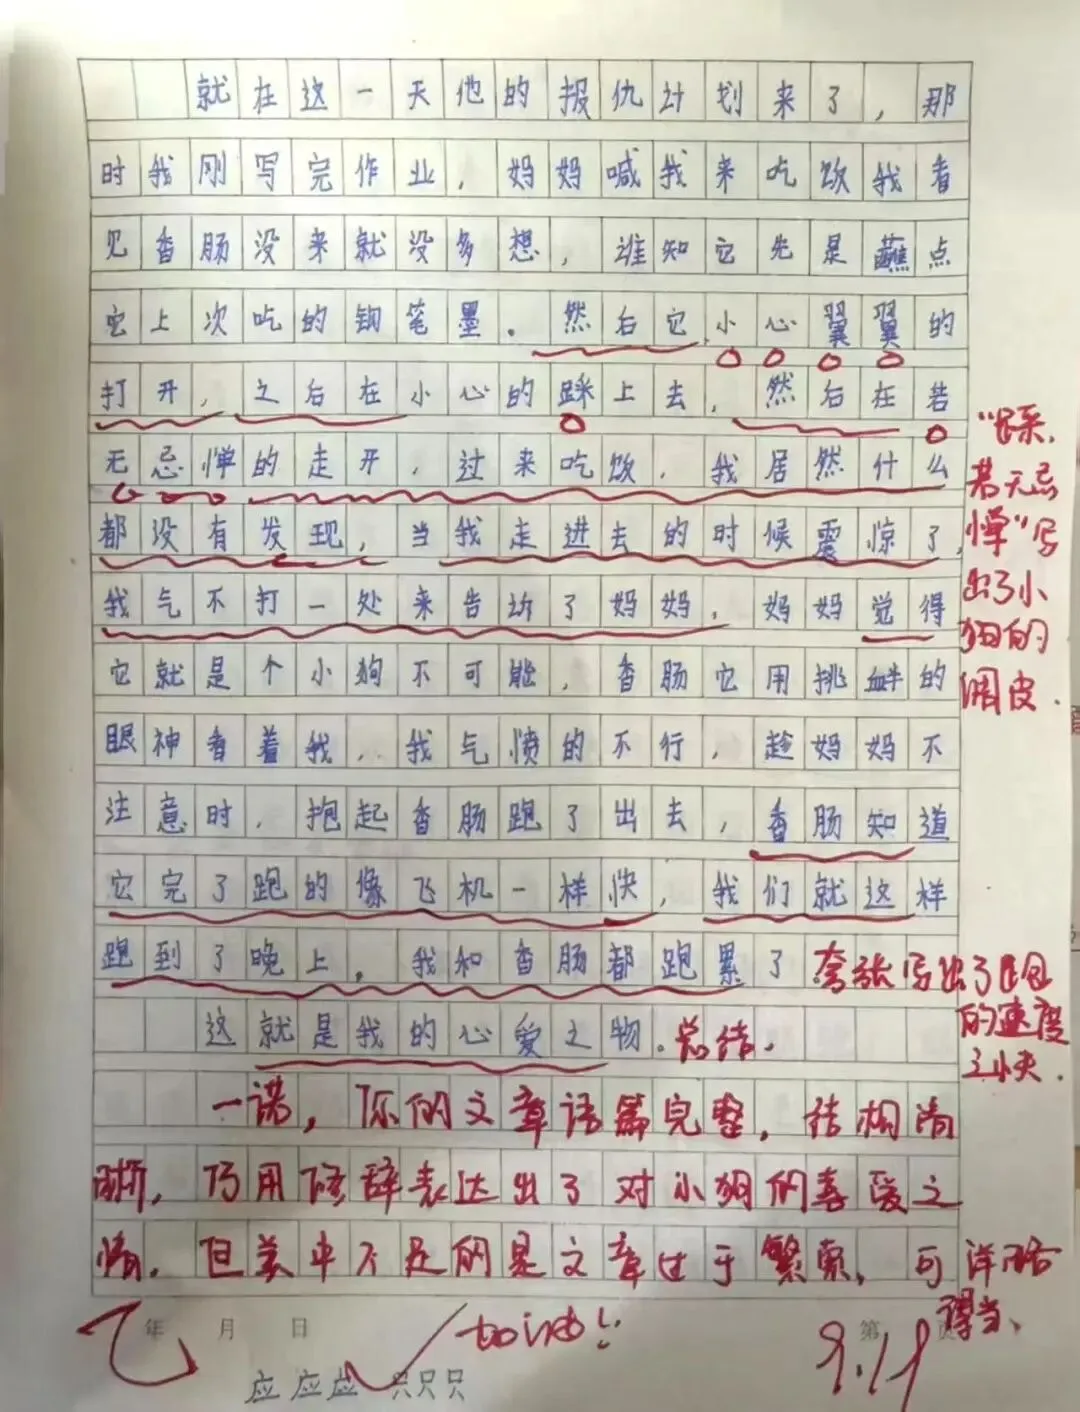 就在这一天他的报仇计划来了，那
时我刚写完作业，妈妈喊我来吃饭我看
见香肠没来就没多想，谁知它先是蘸点
它上次吃的钢笔墨。然后它小心翼翼的
打开，之后在小心的踩上去，然后在若
无忌惮的走开，过来吃饭，我居然什么
都没有发现，当我走进去的时候震惊了，
我气不打一处来告诉了妈妈，妈妈觉得
它就是个小狗不可能，香肠它用挑衅的
眼神看着我，我气愤的不行，趁妈妈不
注意时，抱起香肠跑了出去，香肠知道
它完了跑的像飞机一样快，我们就这样
跑到了晚上，我和香肠都跑累了
这就是我的心爱之物。总结.
"踩,
若无忌
惮"写
出了小
狗的
调皮.
夸张写出了
的速度
之快.
一诺，你的文章语篇完整，结构清
晰，巧用修辞表达出了对小狗的喜爱之
情。但美中不足的是文章过于繁索，可详略
得当、
年 月 日
加油!
第 页
9.19
应应应 只只只